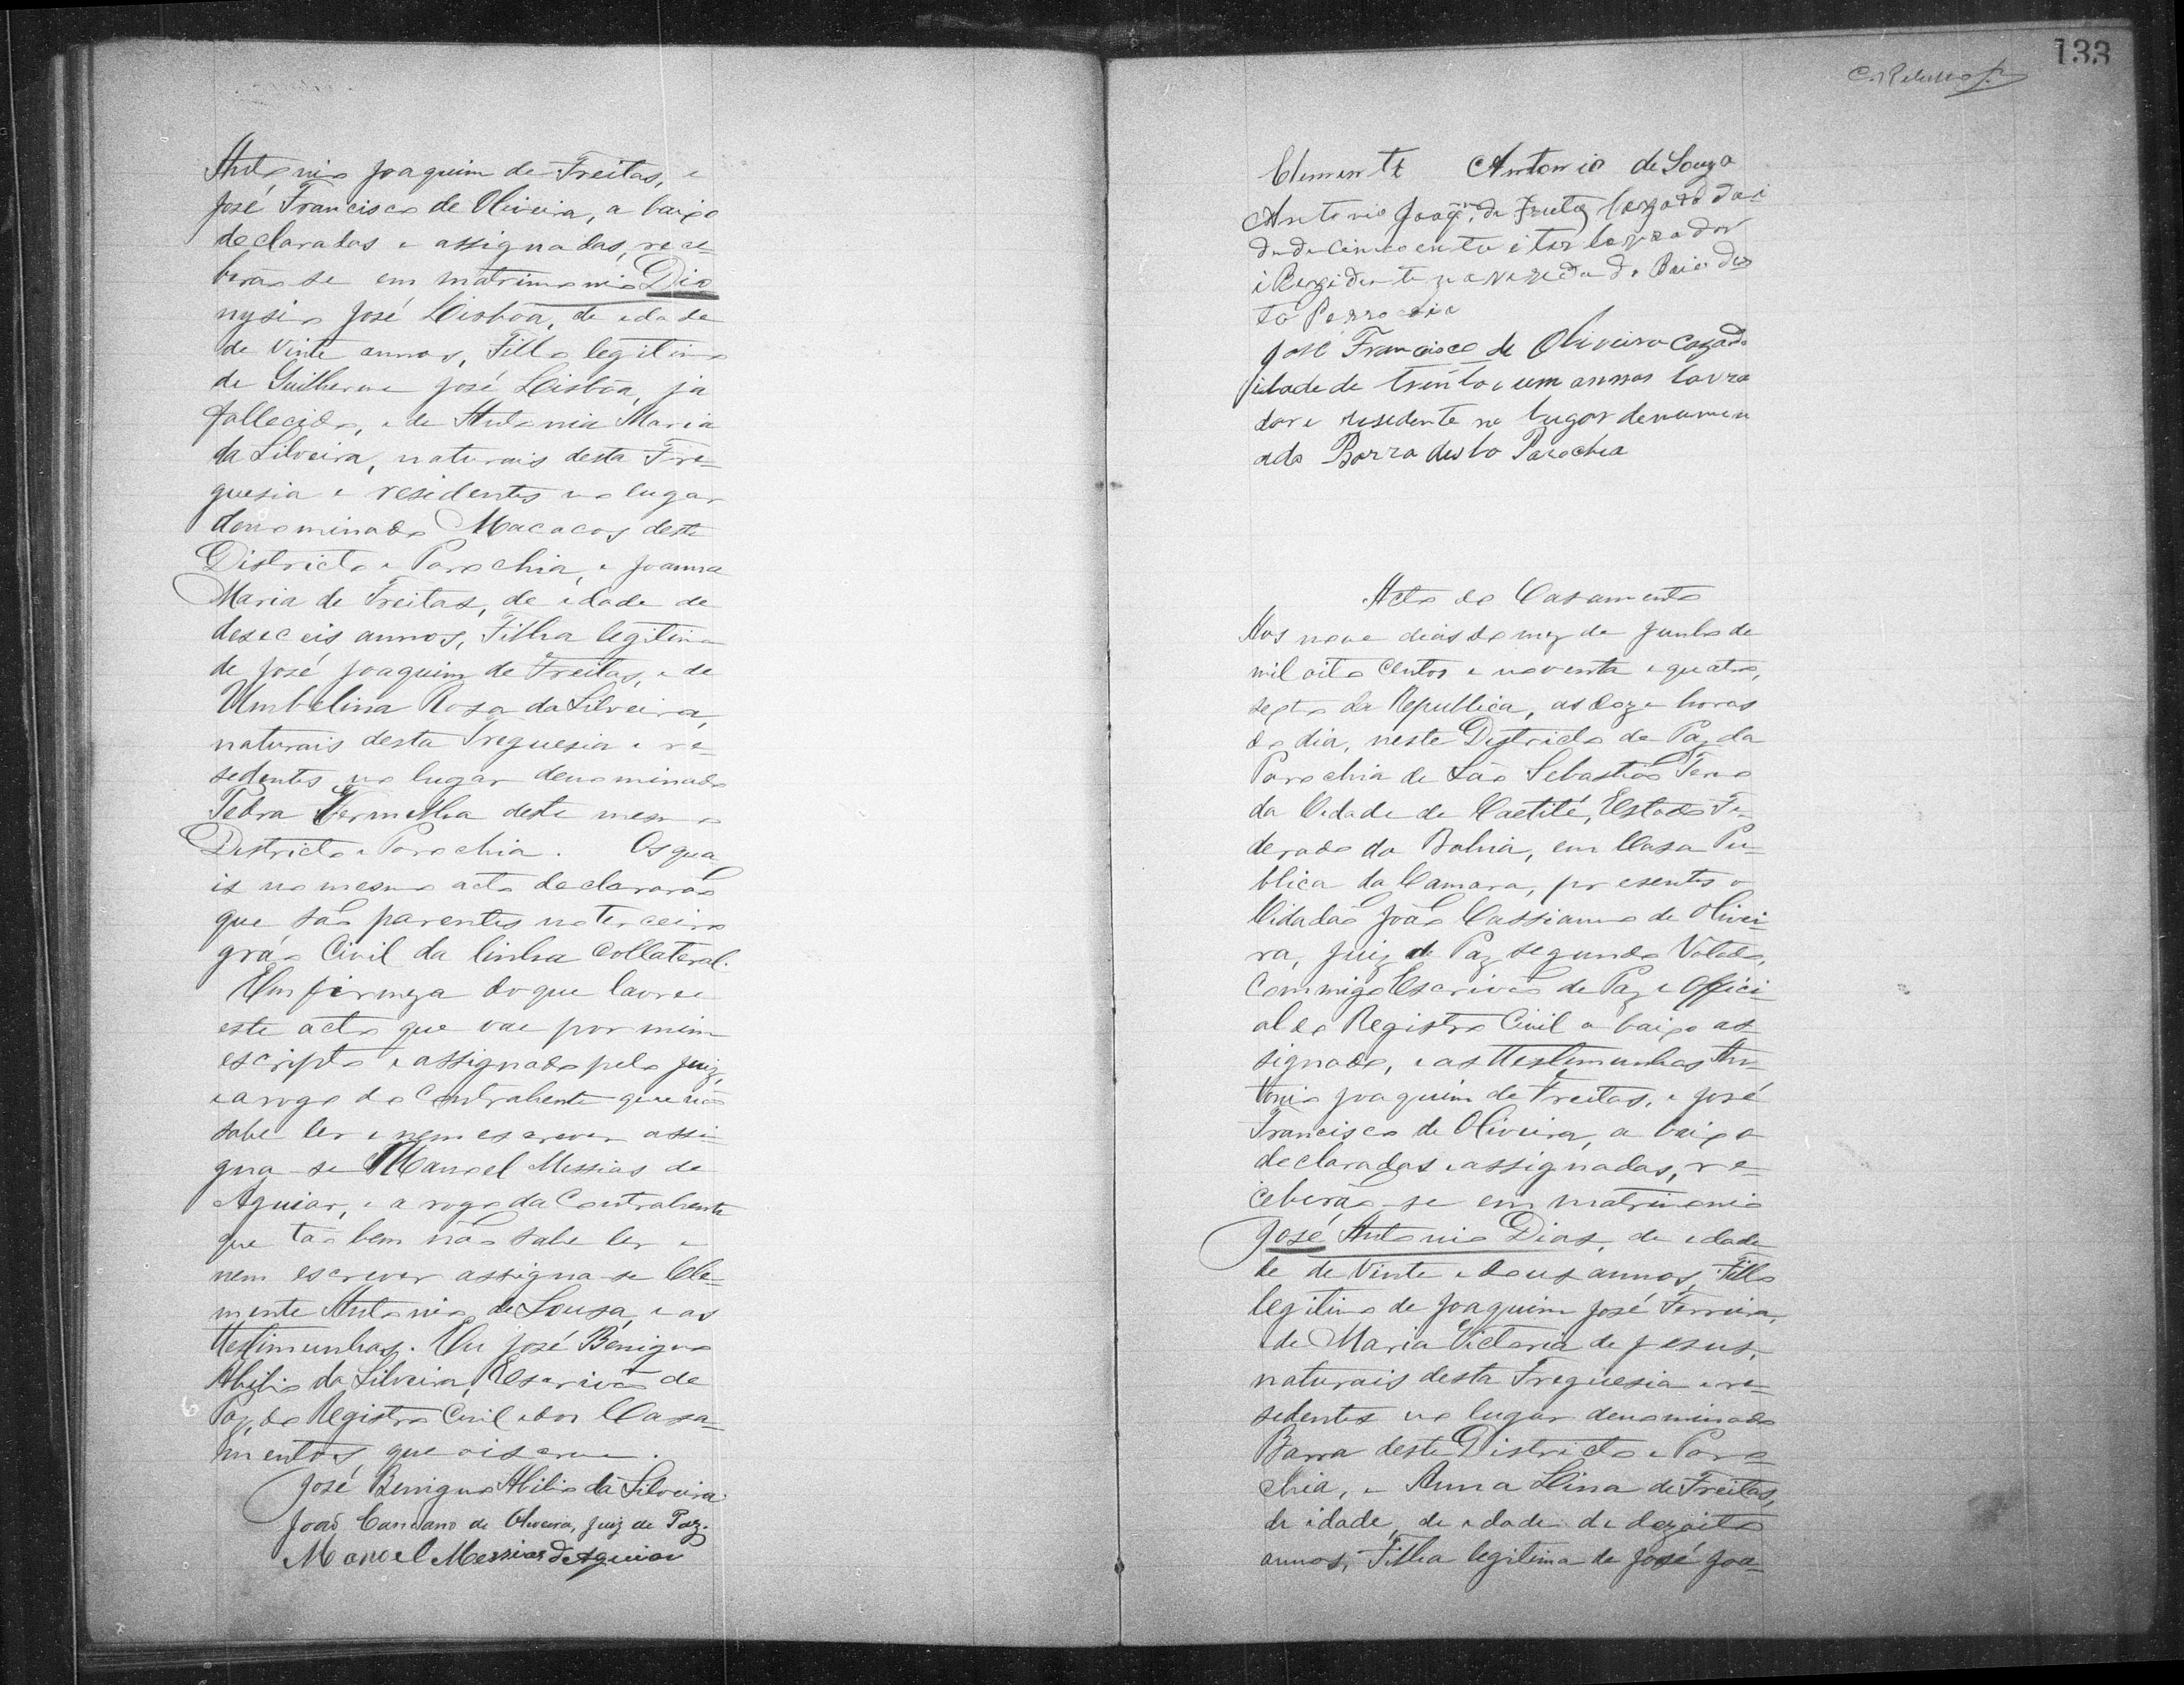 António Joaquim de Freitas, e
José Francisco de Oliveira, a baixo
declarados e assignadas, rece-
berão se em matrimonio Dio
nysio José Lisbôa, de edade
de vinte annos, Filho legitimo
de Guilherme José Lisbôa, ja
fallecido, e de Antonia Maria
da Silveira, naturais desta Fre-
guesia e residentes no lugar
denominado Macacos deste
Districto e Parochia, e Joanna
Maria de Freitas, de edade de
deseceis annos, Filha legitima
de José Joaquim de Freitas, e de
Umbelina Rosa da Silveira,
naturais desta Freguesia e re-
sedentes no lugar denominado
Pedra Vermelha deste mesmo
Districto e Parochia. Os qua
is no mesmo acto declararão
que são parentes no terceiro
gráo Civil da linha Collateral.
Em firmeza do que lavrei
este acto que vae por mim
escripto e assignado pelo Juiz,
e a rogo do Contrahente que não
sabe ler e nem escrever assi-
gna-se Manoel Messias de
Aguiar, e a rogo da Contrahente
que tão bem não sabe ler e
nem escrever assigna-se Cle-
mente Antonio de Sousa, e as
testimunhas. Eu José Benigno
Abilio da Silveira, Escrivão de
Paz, do Registro Civil e dos Casa-
mentos, que o iscrevi.
José Benigno Abilio da Silveira
João Cassiano de Oliveira, Juiz de Paz.
Manoel Messias de Aguiar
133
Clemente Antonio de Souza
Antonio Joaqm. de Freitas Cazado da i
dade de cincoenta e tres lavrador
i Rezidente na vereda do Baio des
ta Parrocia
José Francisco de Oliveira Cazado
idade de trinta e um annos lavra
dor e resedente no lugar denumin
ado Barra desta Parochia
Acto do Casamento
Aos nove dias do mez de Junho de
mil oito centos e noventa e quatro,
sexto da Republica, as doze horas
do dia, neste Districto de Paz da
Parochia de São Sebastião Termo
da Cidade de Caetité, Estado Fe-
derado da Bahia, em Casa Pu-
blica da Camara, presentes o
Cidadão João Cassiano de Olivei-
ra, Juiz de Paz segundo Votado,
Commigo Escrivão de Paz e Offici-
al do Registro Civil a baixo as
signado, e as testimunhas An-
tonio Joaquim de Freitas, e José
Francisco de Oliveira, a baixo
declaradas e assignadas, re-
ceberão-se em matrimonio
José Antonio Dias, de edade
de de vinte e dous annos, Filho
legitimo de Joaquim José Ferreira,
e de Maria Victoria de Jesus,
naturais desta Freguesia e re-
sedentes no lugar denominado
Barra deste Districto e Paro
chia, e Anna Lina de Freitas,
de idade, de edade de dezoito
annos, Filha legitima de José Joa-